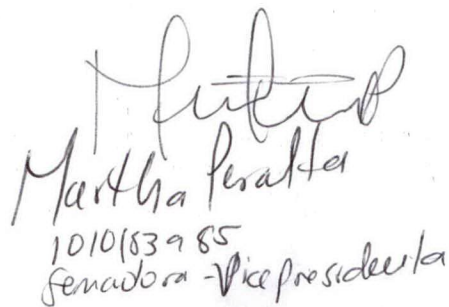 Martha Peralta
1010183985
Senadora - Vicepresidenta